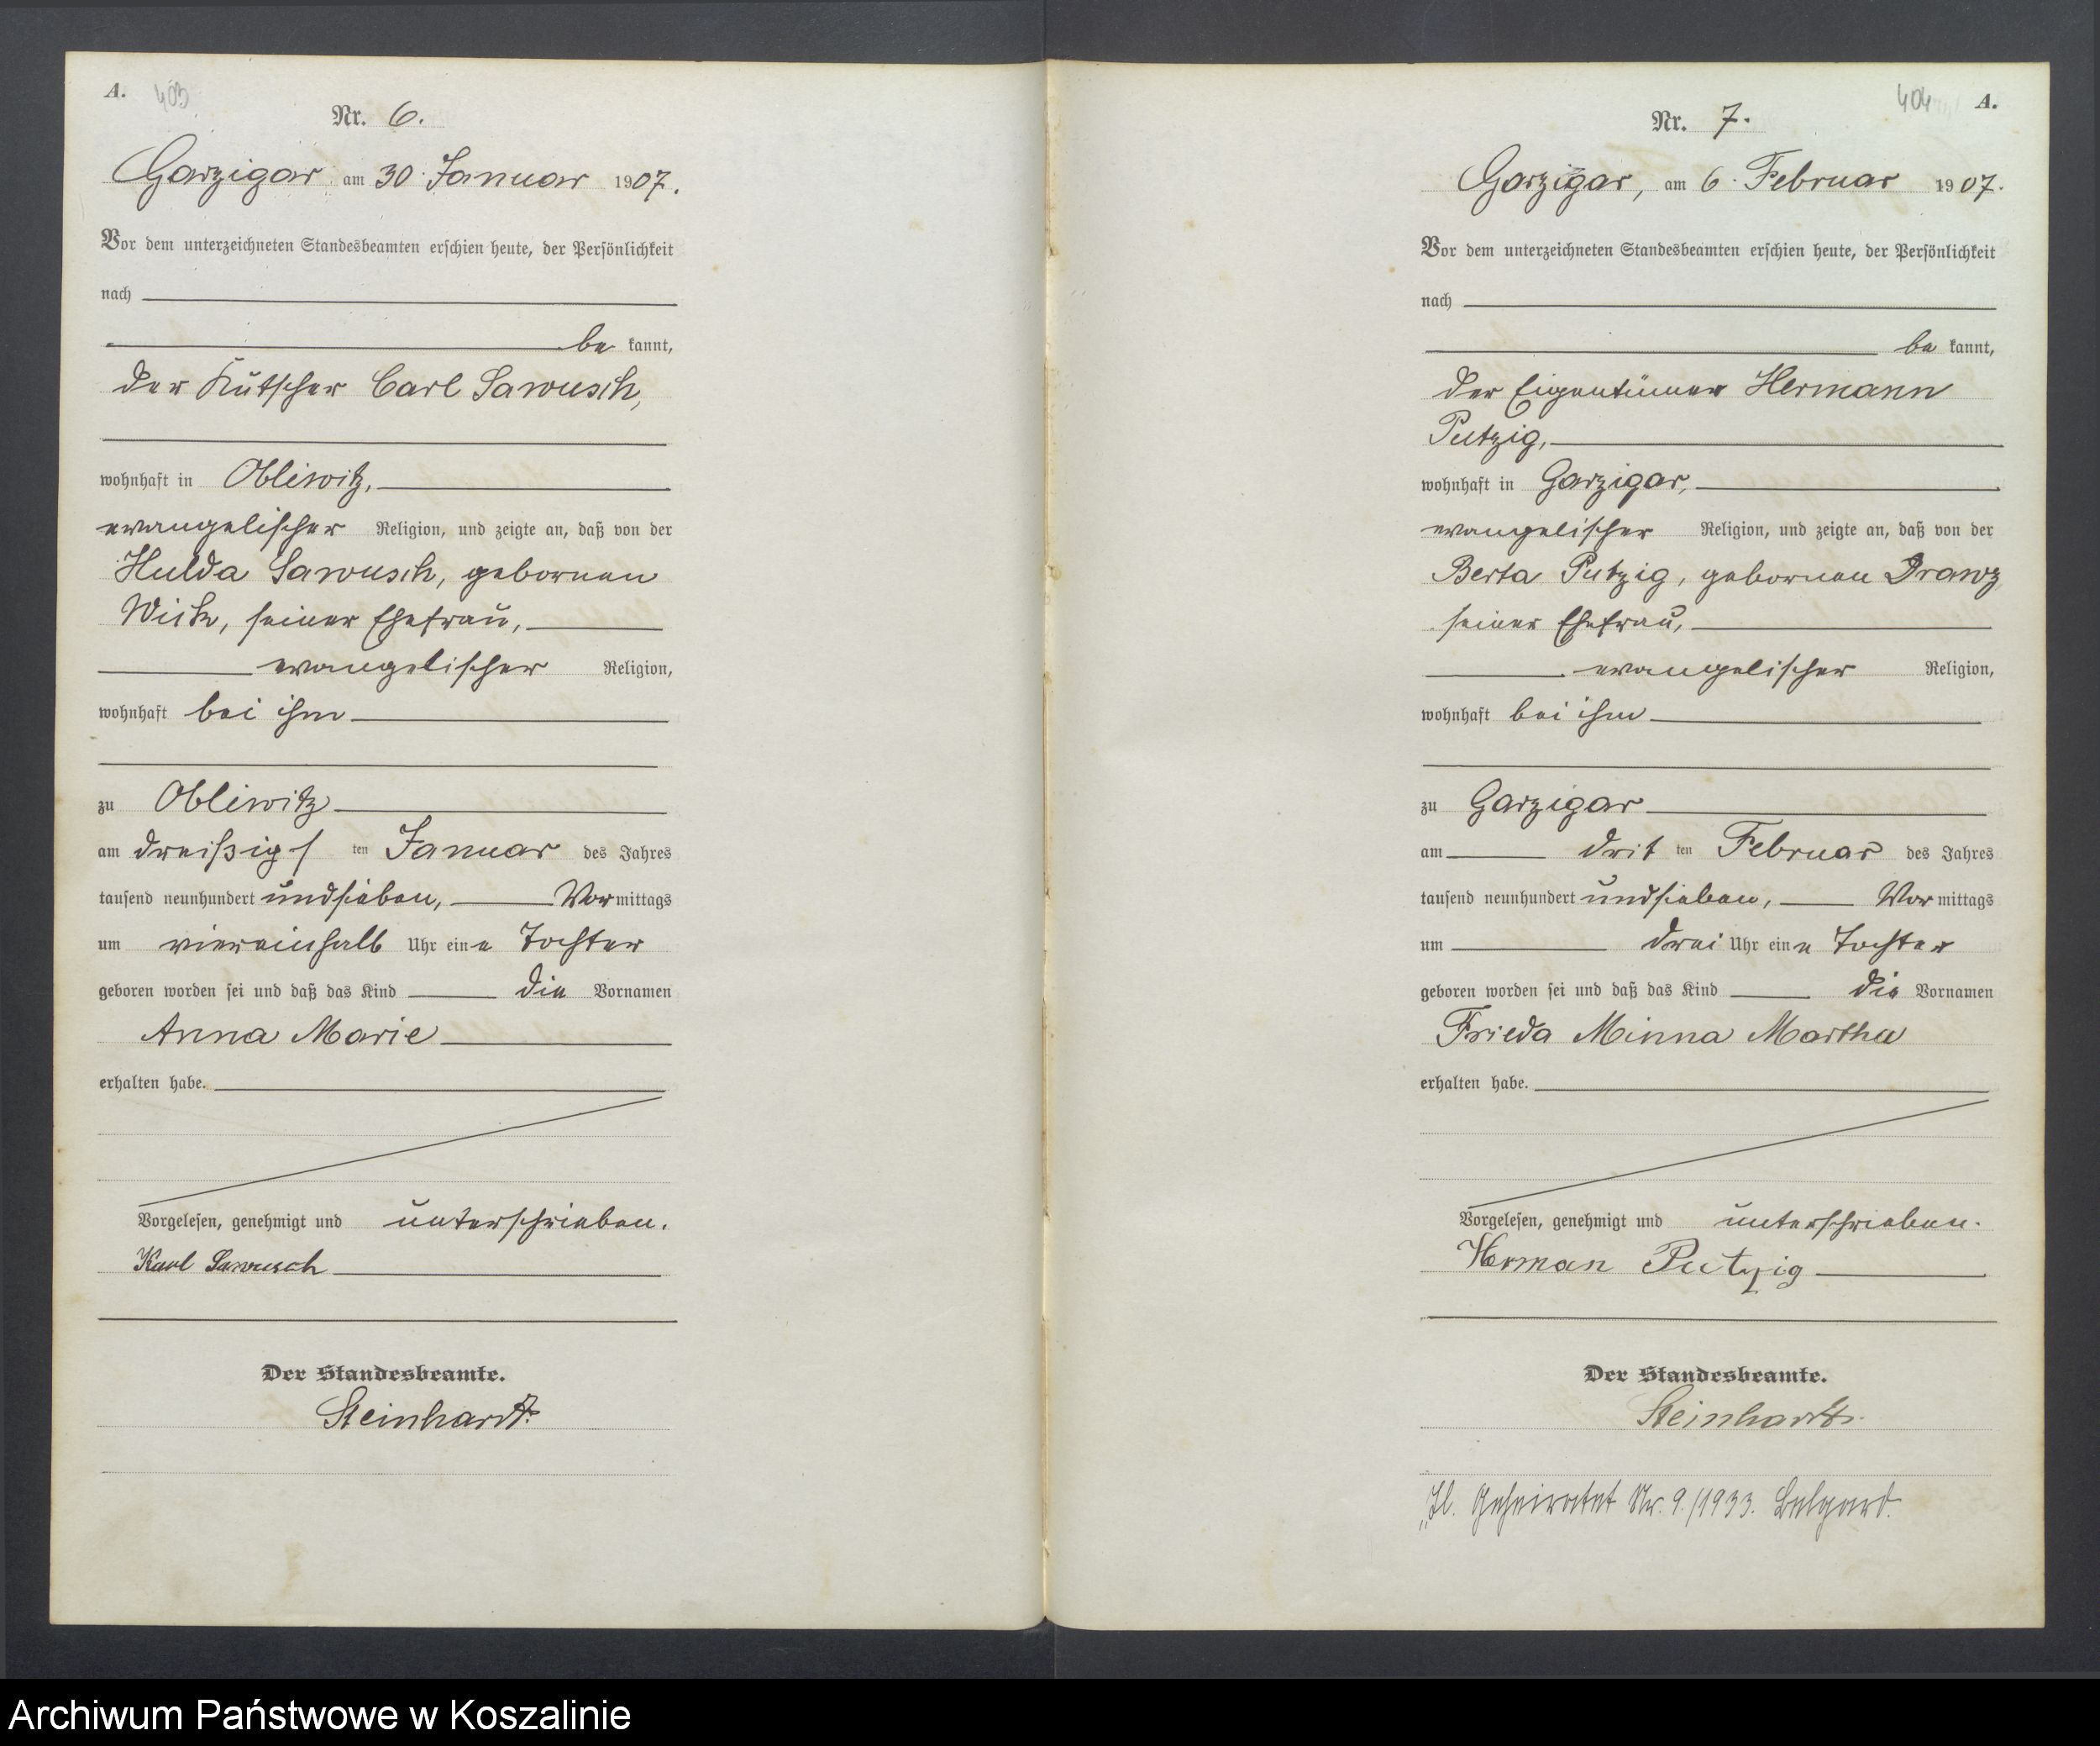 A. 403
Nr. 6.
Garzigar am 30. Januar 1907.
Vor dem unterzeichneten Standesbeamten erschien heute, der Persönlichkeit
nach
be kannt,
der Kutscher Carl Sawusch,
wohnhaft in Obliwitz,
evangelischer Religion, und zeigte an, daß von der
Hulda Sawusch, gebornen
Wick, seiner Ehefrau,
evangelischer Religion,
wohnhaft bei ihm
zu Obliwitz
am dreißigs ten Januar des Jahres
tausend neunhundert und sieben, Vor mittags
um viereinhalb Uhr eine Tochter
geboren worden sei und daß das Kind die Vornamen
Anna Marie
erhalten habe.
Vorgelesen, genehmigt und unterschrieben.
Karl Sawusch
Der Standesbeamte.
Steinhardt.
404 A.
Nr. 7.
Garzigar, am 6. Februar 1907.
Vor dem unterzeichneten Standesbeamten erschien heute, der Persönlichkeit
nach
be kannt,
der Eigentümer Hermann
Putzig,
wohnhaft in Garzigar,
evangelischer Religion, und zeigte an, daß von der
Berta Putzig, gebornen Drawz
seiner Ehefrau,
evangelischer Religion,
wohnhaft bei ihm
zu Garzigar
am drit ten Februar des Jahres
tausend neunhundert und sieben, Vor mittags
um drei Uhr eine Tochter
geboren worden sei und daß das Kind die Vornamen
Frieda Minna Martha
erhalten habe.
Vorgelesen, genehmigt und unterschrieben.
Herman Putzig
Der Standesbeamte.
Steinhardt.
Geheiratet Nr. 9./1933. Belgard.
Archiwum Państwowe w Koszalinie